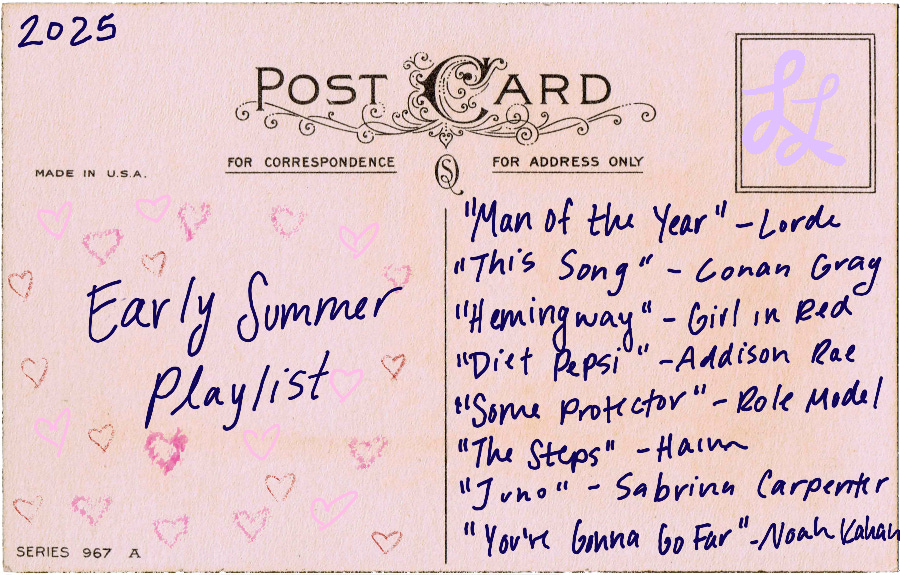 2025
POST CARD
FOR CORRESPONDENCE
FOR ADDRESS ONLY
MADE IN U.S.A.
LL
Early Summer
Playlist
"Man of the Year" - Lorde
"This Song" - Conan Gray
"Hemingway" - Girl in Red
"Diet Pepsi" - Addison Rae
"Some Protector" - Role Model
"The Steps" - Haim
"Juno" - Sabrina Carpenter
"You're Gonna Go Far" - Noah Kahan
SERIES 967 A